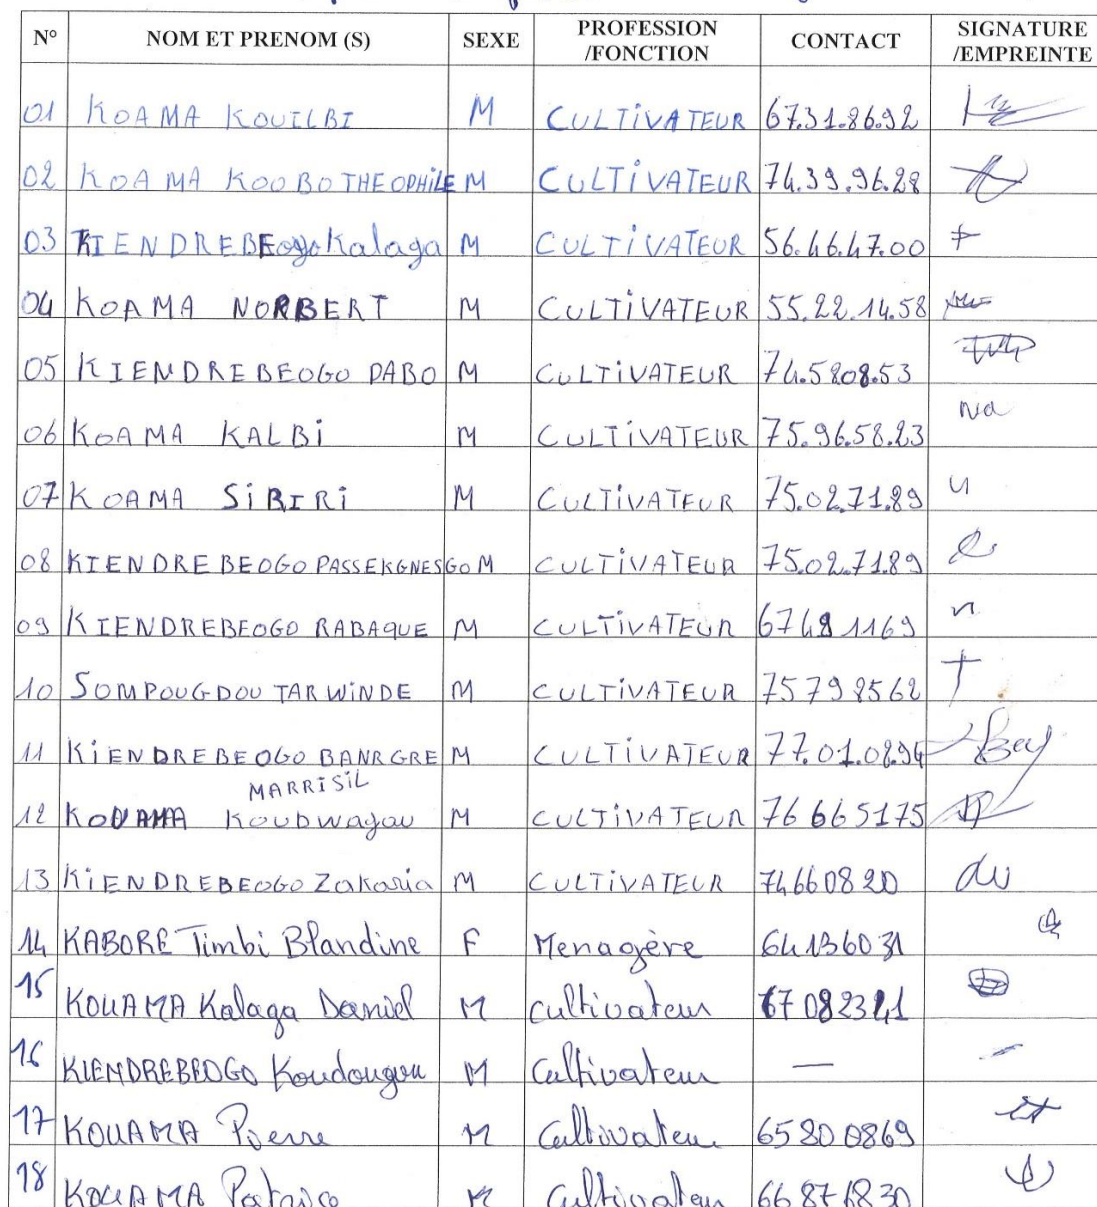 N° NOM ET PRENOM (S) SEXE PROFESSION /FONCTION CONTACT SIGNATURE /EMPREINTE
01 KOAMA KOUILBI M CULTIVATEUR 67.31.86.92
02 KOAMA KOOBO THEOPHILE M CULTIVATEUR 74.39.96.28
03 KIENDREBEogo Kalaga M CULTIVATEUR 56.46.47.00
04 KOAMA NORBERT M CULTIVATEUR 55.22.14.58
05 KIENDREBEOGO DABO M CULTIVATEUR 74.5808.53
06 KOAMA KALBi M CULTIVATEUR 75.96.58.23
07 KOAMA SiBIRi M CULTIVATEUR 75.02.71.89
08 KIENDREBEOGO PASSEKGNESGO M CULTIVATEUR 75.02.71.89
09 KIENDREBEOGO RABAQUE M CULTIVATEUR 67481169
10 SOMPOUGDOU TARWINDE M CULTIVATEUR 75798562
11 KiENDREBEOGO BANRGRE M CULTIVATEUR 77.01.08.94
MARRISIL
12 KOUAMA Koudwagou M CULTIVATEUR 76665175
13 KiENDREBEOGO Zakaria M CULTIVATEUR 74660820
14 KABORE Timbi Blandine F Menagère 64136031
15 KOUAMA Kalaga Daniel M Cultivateur
16 KIENDREBEOGO Koudougou M Cultivateur —
17 KOUAMA Pierre M Cultivateur 65800869
18 KOUAMA Patrice M Cultivateur